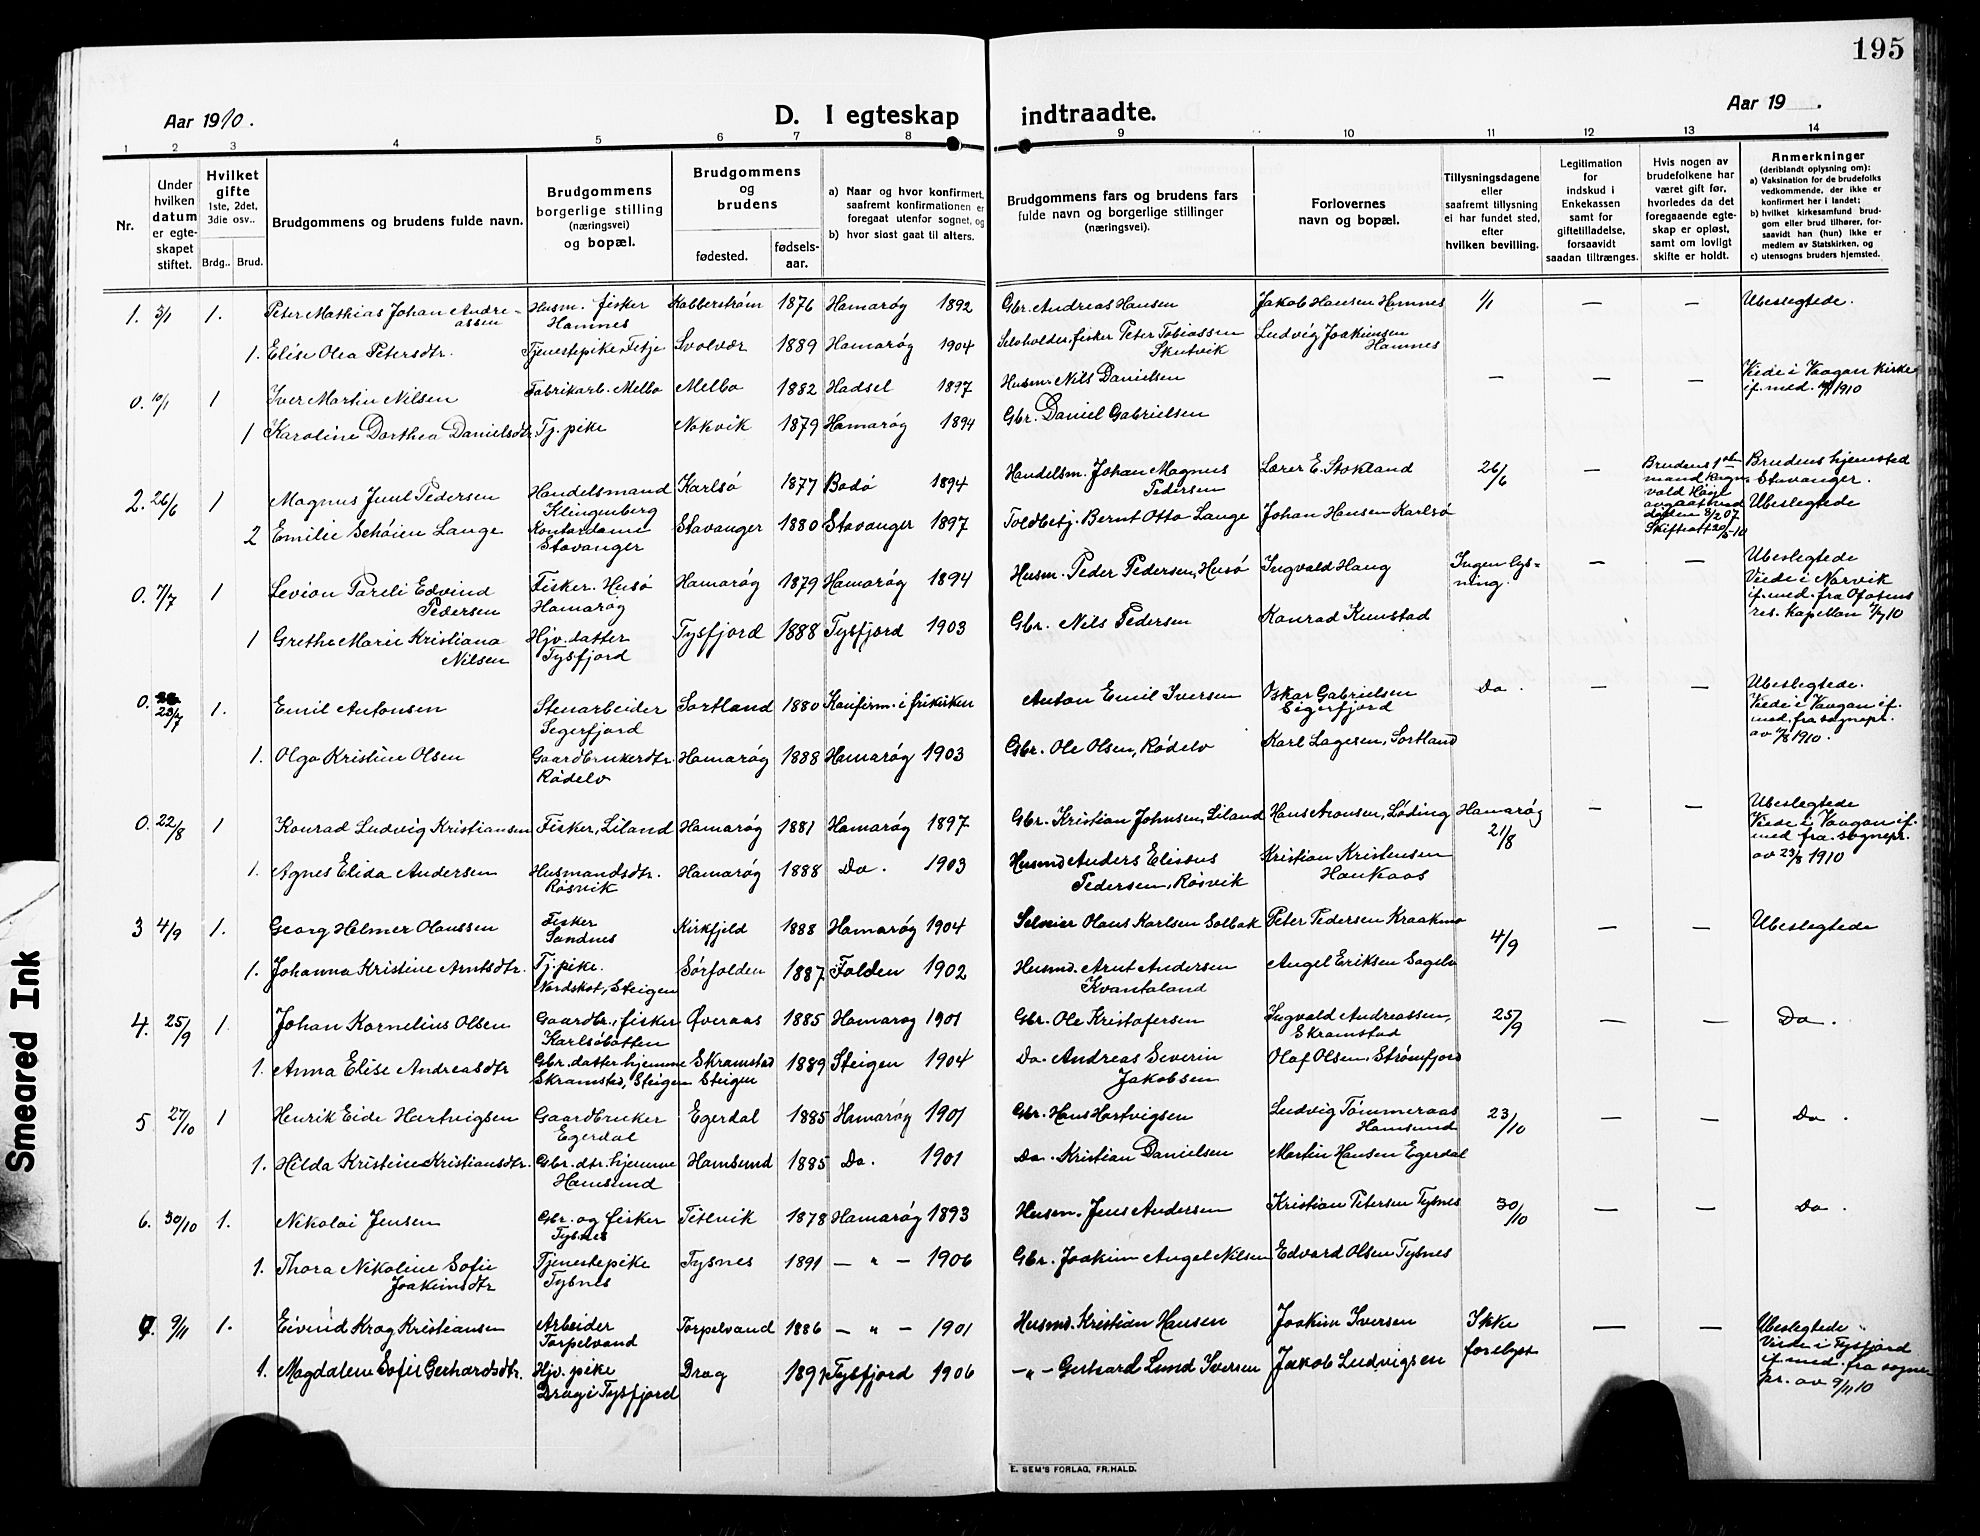 195
Aar 1910.
D. I egteskap indtraadte.
Aar 19 .
1 2 3 4 5 6 7 8 9 10 11 12 13 14
Nr.
Under hvilken datum er egteskapet stiftet.
Hvilket gifte 1ste, 2det, 3die osv..
Brdg.. Brud.
Brudgommens og brudens fulde navn.
Brudgommens borgerlige stilling (næringsvei) og bopæl.
Brudgommens og brudens
fødested.
fødsels-aar.
a) Naar og hvor konfirmert, saafremt konfirmationen er foregaat utenfor sognet, og
b) hvor sidst gaat til alters.
Brudgommens fars og brudens fars fulde navn og borgerlige stillinger (næringsvei).
Forlovernes navn og bopæl.
Tillysningsdagene eller saafremt tillysning ei har fundet sted, efter hvilken bevilling.
Legitimation for indskud i Enkekassen samt for giftetilladelse, forsaavidt saadan tiltrænges.
Hvis nogen av brudefolkene har været gift før, hvorledes da det foregaaende egteskap er opløst, samt om lovligt skifte er holdt.
Anmerkninger (deriblandt oplysning om): a) Vaksination for de brudefolks vedkommende, der ikke er konfirmert her i landet; b) hvilket kirkesamfund brudgom eller brud tilhører, forsaavidt han (hun) ikke er medlem av Statskirken, og c) utensogns bruders hjemsted.
1. 3/1 1. Peter Mathias Johan Andreassen Husm. fisker Hamnes Kobberstrøm 1876 Hamarøy 1892 Gbr. Andreas Hansen Jakob Hansen Hamnes 1/1 — — Ubeslegtede.
1. Elise Olea Petersdtr. Tjenestepike, Tetje Svolvær 1889 Hamarøy 1904 Selvholder, fisker Peter Tobiassen Skutvik Ludvig Joakimsen Hamnes
0. 10/1 1 Iver Martin Nilsen Fabrikarb. Melbo Melbo 1882 Hadsel 1897 Husm. Nils Danielsen — — — Viede i Vaagan kirke if. med. 1910
1 Karoline Dorthea Danielsdtr. Tj. pike Nokvik 1879 Hamarøy 1894 Gbr. Daniel Gabrielsen
2. 26/6 1 Magnus Juul Pedersen Handelsmand Klingenberg Karlsö 1877 Bodö 1894 Handelsm. Johan Magnus Pedersen Lærer E. Stokland 26/6 — Brudens 1ste mand Ragnvald Höje avgaat ved døden 3/2 07 Skifteatt 20/5-10 Brudens hjemsted Stavanger. Ubeslegtede
2 Emilie Schöien Lange Kontordame Stavanger Stavanger 1880 Stavanger 1897 Toldbetj. Bernt Otto Lange Johan Hansen Karlsö
0. 7/7 1 Levion Pareli Edvind Pedersen Fisker. Husö Hamarøy Hamarøy 1879 Hamarøy 1894 Husm. Peder Pedersen, Husö Ingvald Haug Ingen lysning. — — Ubeslegtede Viede i Narvik if. med. fra Ofotens res. kapellan 7/7 10
1 Grethe Marie Kristiana Nilsen Hjv. datter Tysfjord Tysfjord 1888 Tysfjord 1903 Gbr. Nils Pedersen Konrad Kunstad
0. 23/7 1. Emil Antonsen Stenarbeider Segerfjord Sortland 1880 Konfirm. i frikirken Anton Emil Iversen Oskar Gabrielsen Eigerfjord Do. — — Ubeslegtede. Viede i Vaagan if. med. fra sognepr. av 7/8 1910.
1. Olga Kristine Olsen Gaardbrukerdtr. Rödelv Hamarøy 1888 Hamarøy 1903 Gbr. Ole Olsen, Rödelv Karl Lagesen, Sortland
0. 22/8 1 Konrad Ludvig Kristiansen Fisker, Liland Hamarøy 1881 Hamarøy 1897 Gbr. Kristian Johnsen, Liland Hans Aronsen, Løding Hamarøy 21/8 — — Ubeslegtede Viede i Vaagan if. med fra sognepr. av 23/8 1910
1. Agnes Elida Andersen Husmandsdtr. Røsvik Hamarøy 1888 Do. 1903 Husmd Anders Elissus Pedersen, Røsvik Kristian Kristensen Haukaas
3 4/9 1. Georg Helmer Olaussen Fisker Sandnes Kirkfjeld 1888 Hamarøy 1904 Selveier Olaus Karlsen Solbak Peter Pedersen Kraakmo 4/9 — — Ubeslegtede
1. Johanna Kristine Arntsdtr. Tj. pike. Nordskot, Steigen Sörfolden 1887 Folden 1902 Husmd. Arnt Andersen Kvantoland Angel Eriksen Sagelv
4. 25/9 1. Johan Kornelius Olsen Gaardbr., fisker Karlsöbotten Øveraas 1885 Hamarøy 1901 Gbr. Ole Kristofersen Ingvald Andreassen, Skramstad 25/9 — — Do.
1. Anna Elise Andreasdtr Gbr. datter hjemme Skramstad, Steigen Skramstad Steigen 1889 Steigen 1904 Do. Andreas Severin Jakobsen Olaf Olsen, Strømfjord
5 27/10 1 Henrik Eide Hartvigsen Gaardbruker Egerdal Egerdal 1885 Hamarøy 1901 Gbr. Hans Hartvigsen Ludvig Tømmeraas Hamsund 23/10 — — Do.
1. Hilda Kristine Kristiansdtr. Gbr. dtr. hjemme Hamsund Hamsund 1885 Do. 1901 Do. Kristian Danielsen Martin Hansen Egerdal
6. 30/10 1. Nikolai Jensen Gbr. og fisker Tysnes Titelvik 1878 Hamarøy 1893 Husm. Jens Andersen Kristian Petersen Tysnes 30/10 — — Do.
1. Thora Nikoline Sofie Joakimsdtr Tjenestepike Tysnes Tysnes 1891 — " — 1906 Gbr. Joakim Angel Nilsen Edvard Olsen Tysnes
7. 9/11 1. Eivind Krog Kristiansen Arbeider Torpelvand Torpelvand 1886 — " — 1901 Husmd. Kristian Hansen Joakim Iversen Ikke forelyst — — Ubeslegtede Viede i Tysfjord if. med. fra sognepr. av 9/11 10
1. Magdalene Sofie Gerhardsdtr. Hjv. pike Drag i Tysfjord Drag 1891 Tysfjord 1906 — " — Gerhard Lund Iversen Jakob Ludvigsen
E. SEM'S FORLAG, FR.HALD.
Smeared Ink